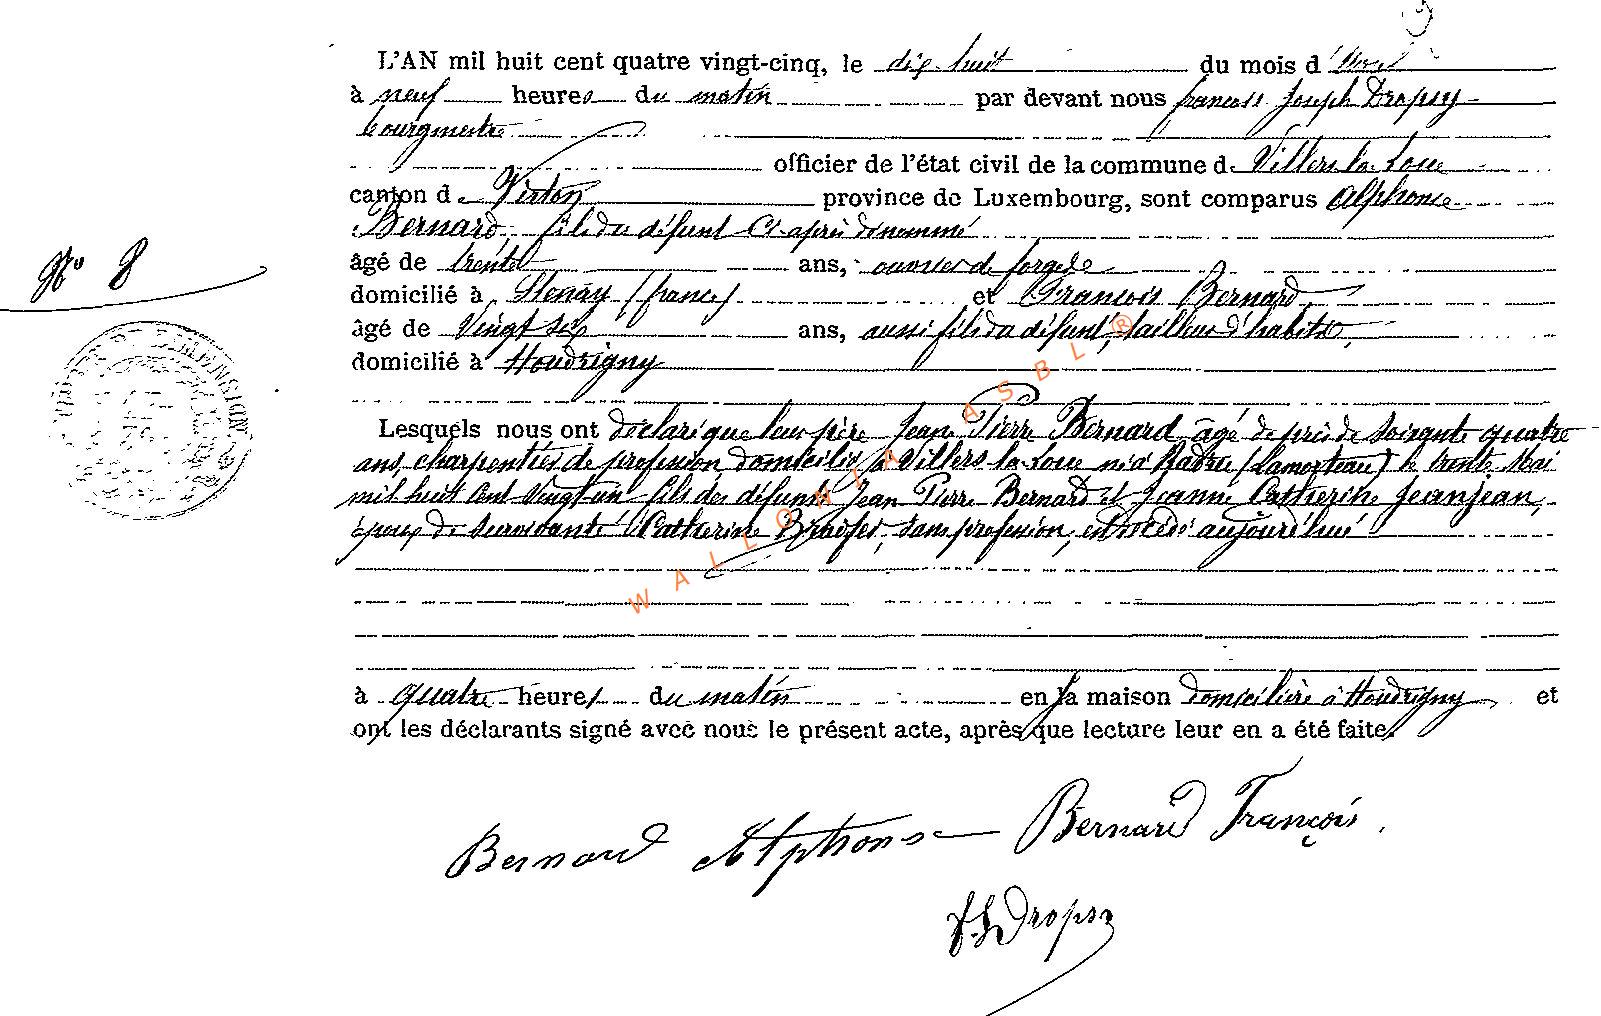 L'AN mil huit cent quatre vingt-cinq, le dix-huit du mois d'Avril
à neuf heures du matin par devant nous françois Joseph Dropsy
bourgmestre
officier de l'état civil de la commune de Villers-la-Loue
canton de Virton province de Luxembourg, sont comparus Alphonse
Bernard, fils du défunt ci-après dénommé
âgé de trente ans, ouvrier de forges
domicilié à Stenay (france) et François Bernard,
âgé de vingt six ans, aussi fils du défunt, tailleur d'habits,
domicilié à Houdrigny
Lesquels nous ont déclaré que leur père Jean Pierre Bernard âgé de près de soixante quatre
ans, charpentier de profession domicilié à Villers-la-Loue né à (Lamorteau) le trente Mai
mil huit cent vingt un fils des défunts Jean Pierre Bernard et Jeanne Catherine Jeanjean,
époux de survivante Catherine sans profession, est décédé aujourd'hui
à quatre heures du matin en sa maison domicilière à Houdrigny et
ont les déclarants signé avec nous le présent acte, après que lecture leur en a été faite.
N° 8
WALLONIA ASBL ®
Bernard Alphonse Bernard François
FJ Dropsy